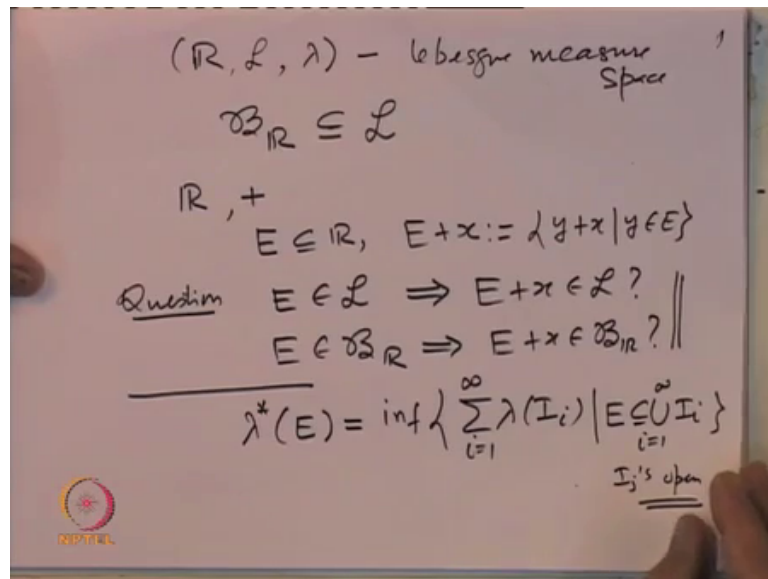 (ℝ, ℒ, λ) – Lebesgue measure 1
Space
𝓑_ℝ ⊆ ℒ
ℝ, +
E ⊆ ℝ, E + x := {y + x | y ∈ E}
Question E ∈ ℒ ⇒ E + x ∈ ℒ ?
E ∈ 𝓑_ℝ ⇒ E + x ∈ 𝓑_ℝ ? ||
λ*(E) = inf { ∑_{i=1}^{∞} λ(I_i) | E ⊆ ⋃_{i=1}^{∞} I_i }
I_j's open
NPTEL